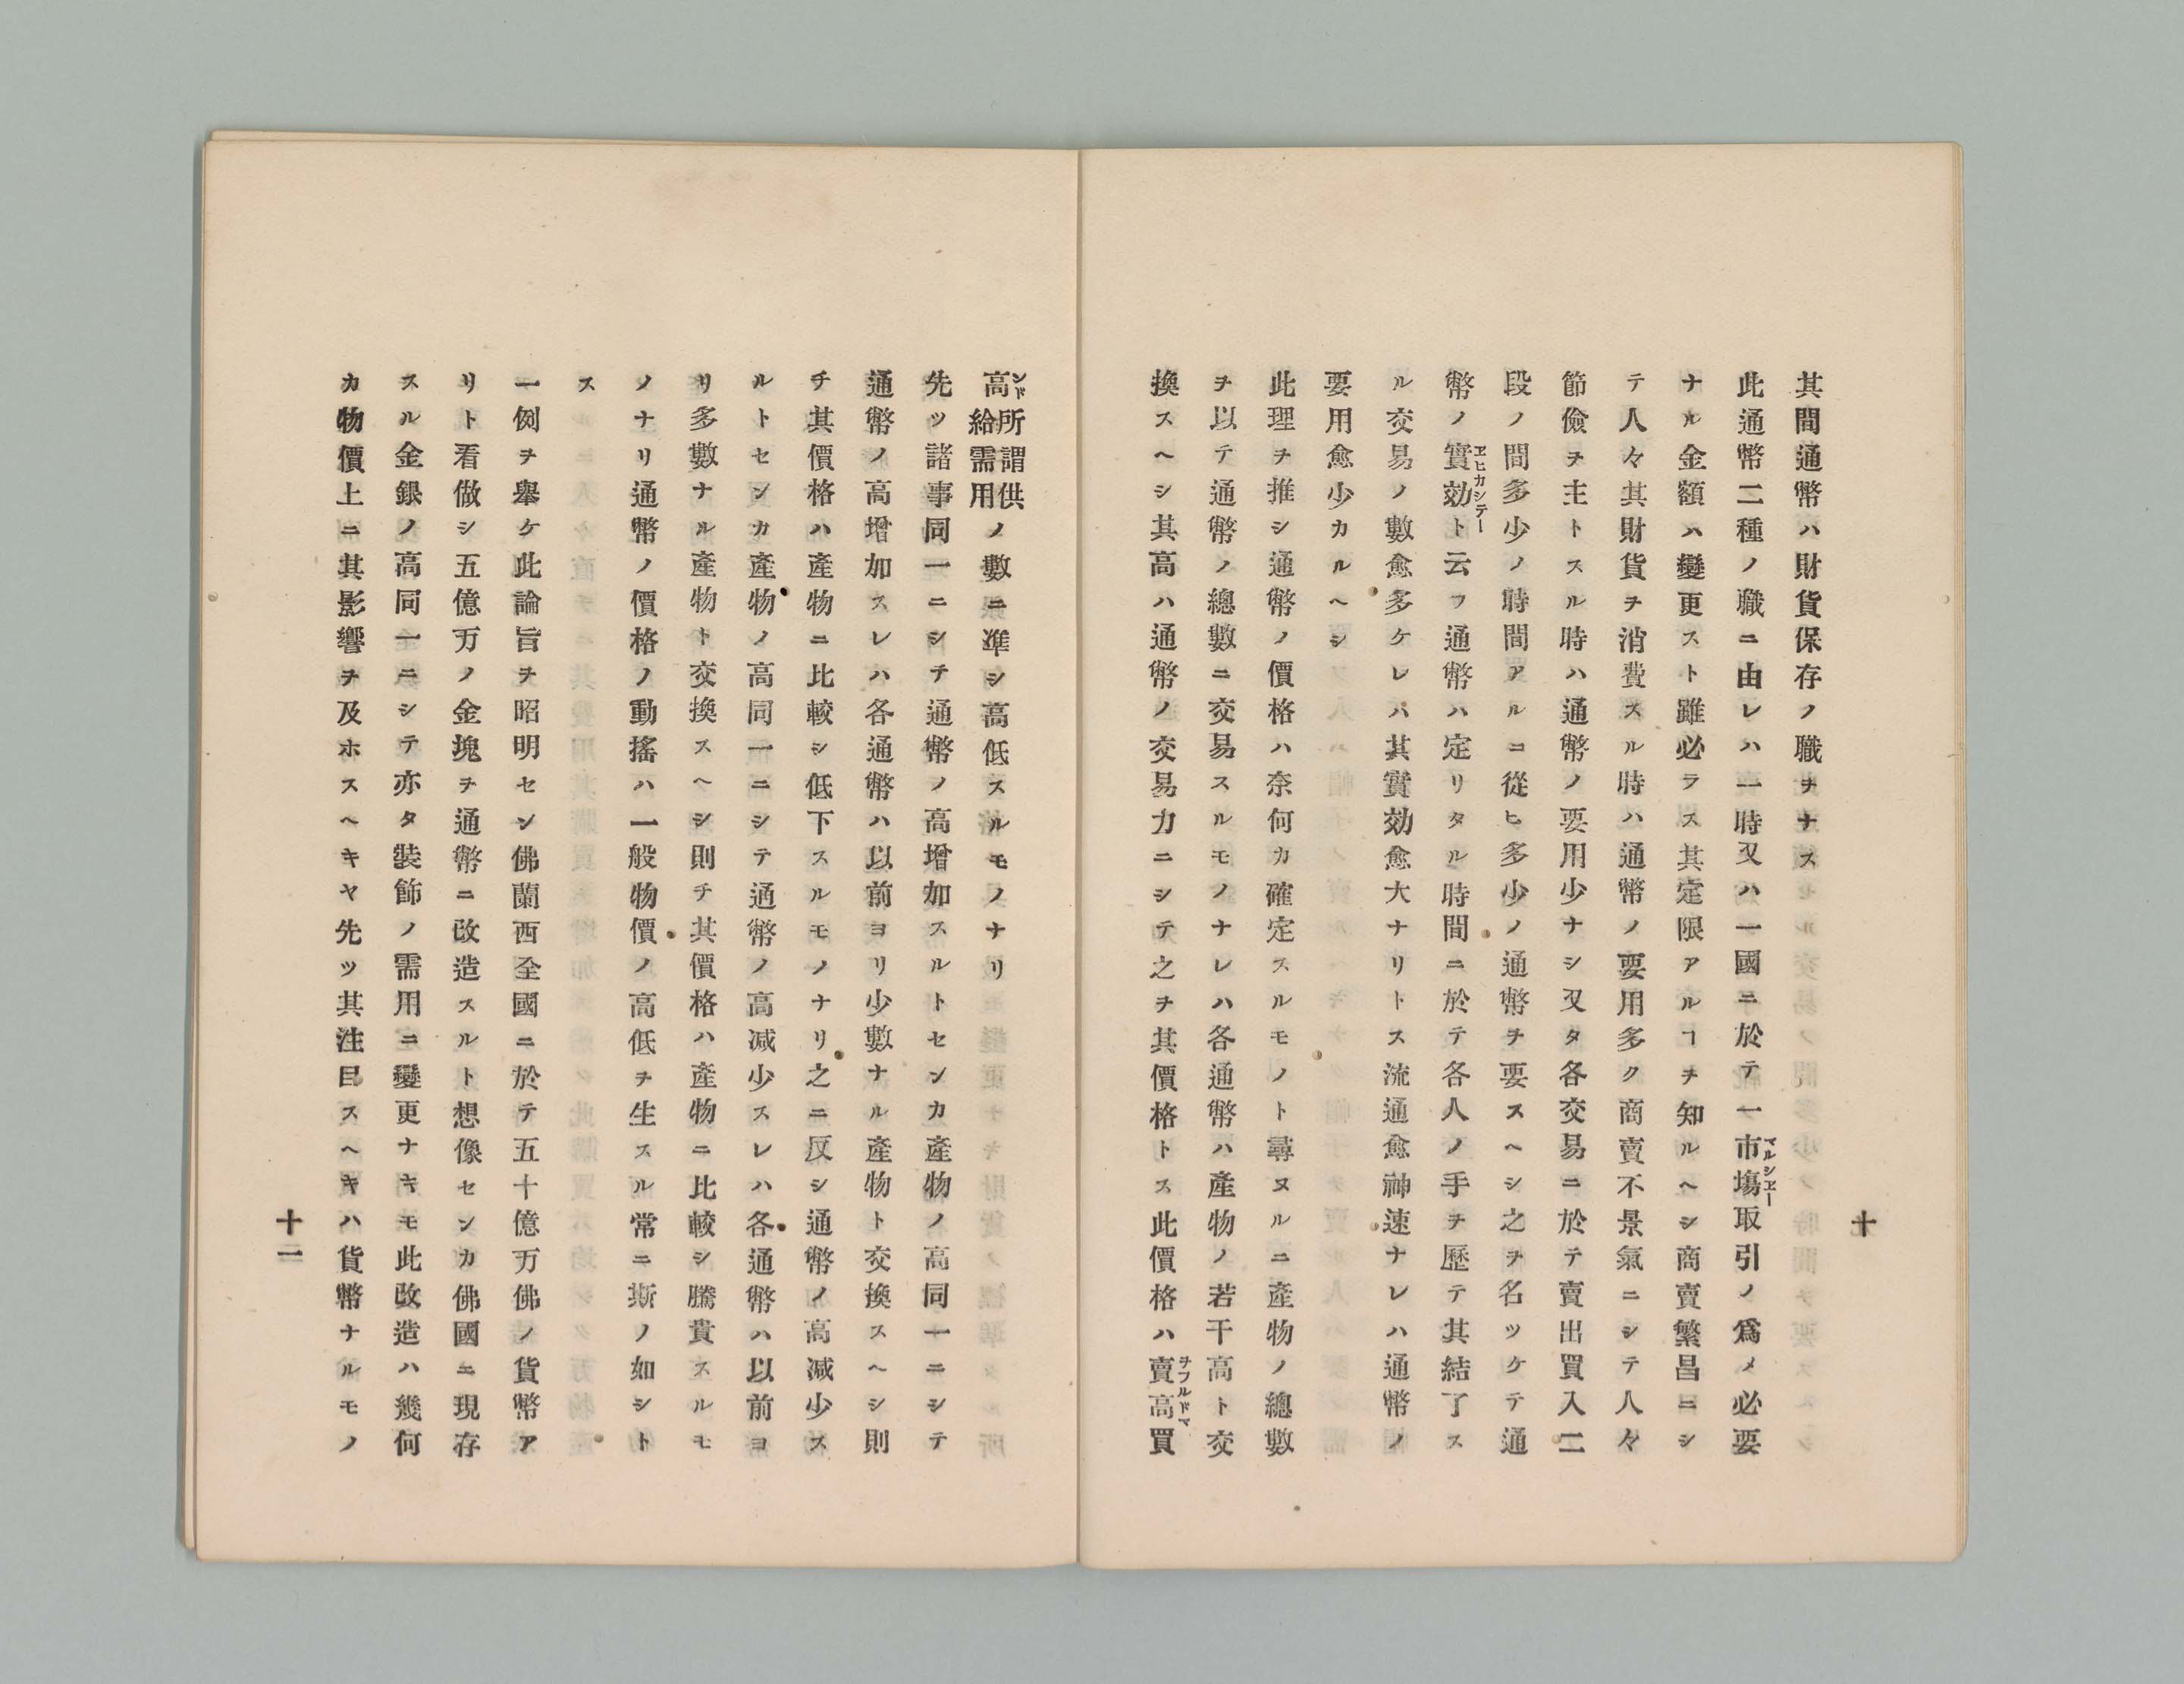 十
其間通幣ハ財貨保存ノ職ヲナス
此通幣二種ノ職ニ由レハ一時又ハ一國ニ於テ一市塲取引ノ爲メ必要
マルシエー
ナル金額ハ變更スト雖必ラス其定限アルヿヲ知ルヘシ商賣繁昌ニシ
テ人々其財貨ヲ消費スル時ハ通幣ノ要用多ク商賣不景氣ニシテ人々
節儉ヲ主トスル時ハ通幣ノ要用少ナシ又タ各交易ニ於テ賣出買入二
段ノ間多少ノ時間アルコ從ヒ多少ノ通幣ヲ要スヘシ之ヲ名ツケテ通
幣ノ實効ト云フ通幣ハ定リタル時間ニ於テ各人ノ手ヲ歷テ其結了ス
ヱヒカシテー
ル交易ノ數愈多ケレハ其實効愈大ナリトス流通愈神速ナレハ通幣ノ
要用愈少カルヘシ
此理ヲ推シ通幣ノ價格ハ奈何カ確定スルモノト尋ヌルニ產物ノ總數
ヲ以テ通幣ノ總數ニ交易スルモノナレハ各通幣ハ產物ノ若干高ト交
換スヘシ其高ハ通幣ノ交易力ニシテ之ヲ其價格トス此價格ハ賣高買
ヲフルドマ
高所謂供給需用ノ數ニ準シ高低スルモノナリ
シド
先ツ諸事同一ニシテ通幣ノ高增加スルトセンカ產物ノ高同一ニシテ
通幣ノ高增加スレハ各通幣ハ以前ヨリ少數ナル產物ト交換スヘシ則
チ其價格ハ產物ニ比較シ低下スルモノナリ之ニ反シ通幣ノ高减少ス
ルトセンカ產物ノ高同一ニシテ通幣ノ高减少スレハ各通幣ハ以前ヨ
リ多數ナル產物ト交換スヘシ則チ其價格ハ產物ニ比較シ騰貴スルモ
ノナリ通幣ノ價格ノ動搖ハ一般物價ノ高低ヲ生スル常ニ斯ノ如シト
ス
一例ヲ舉ケ此論旨ヲ昭明セン佛蘭西全國ニ於テ五十億万佛ノ貨幣ア
リト看做シ五億万ノ金塊ヲ通幣ニ改造スルト想像センカ佛國ニ現存
スル金銀ノ高同一ニシテ亦タ裝飾ノ需用ニ變更ナキモ此改造ハ幾何
カ物價上ニ其影響ヲ及ホスヘキヤ先ツ其注目スヘキハ貨幣ナルモノ
十一